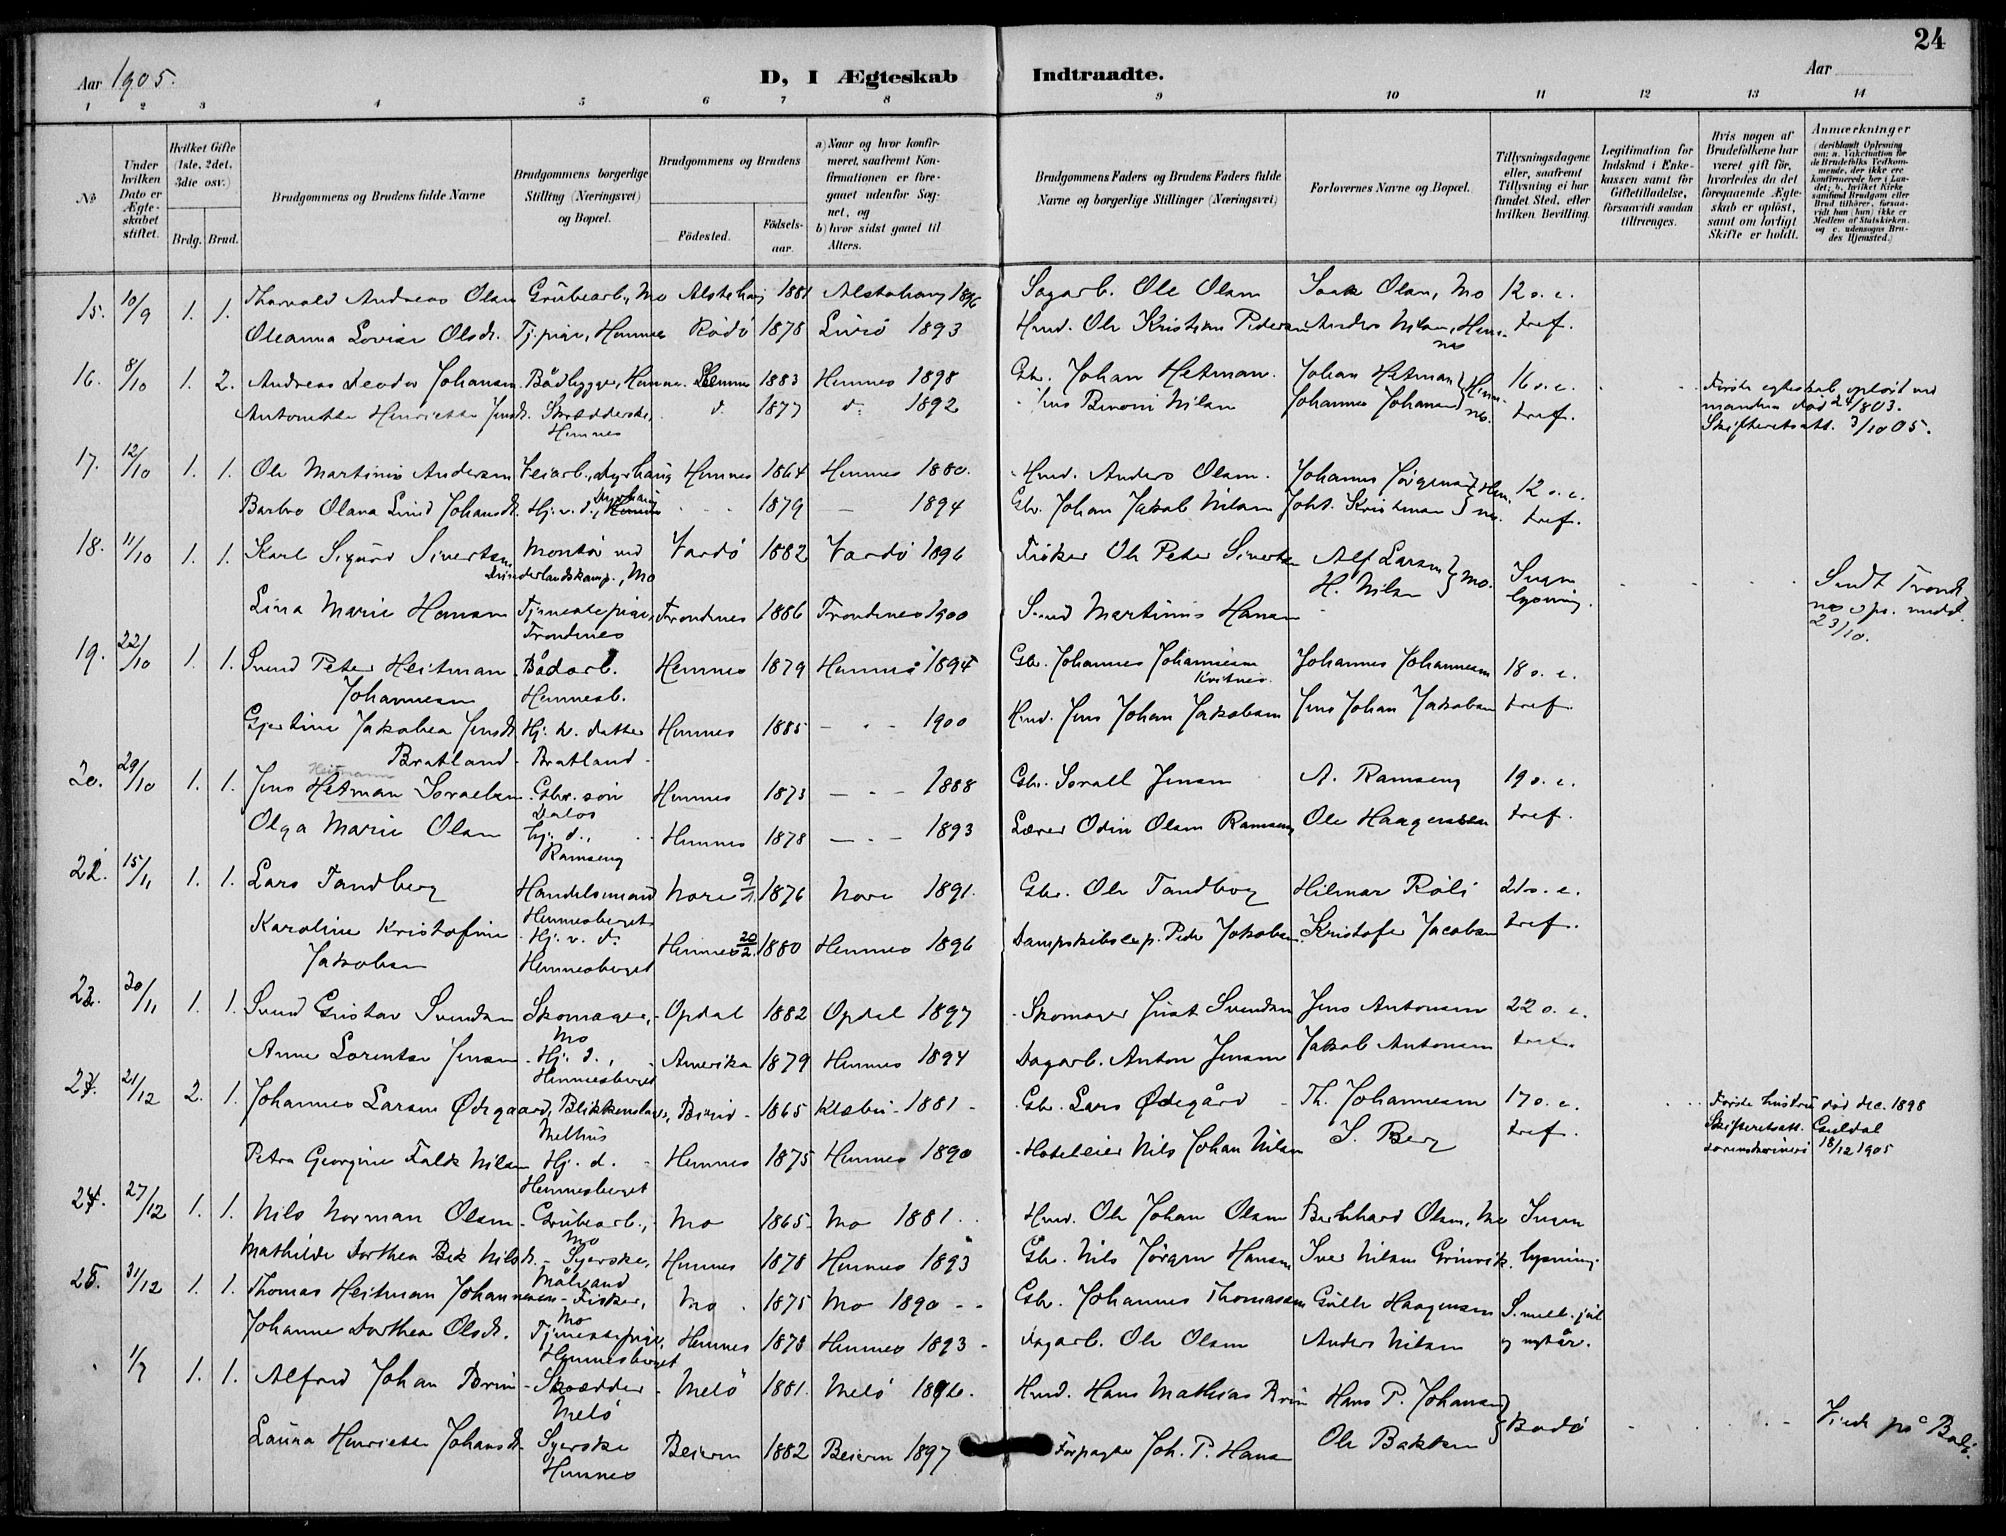 24
Aar 1905.
D, I Ægteskab Indtraadte.
Aar
1 2 3 4 5 6 7 8 9 10 11 12 13 14
No
Under hvilken Dato er Ægteskabet stiftet.
Hvilket Gifte (1ste, 2det, 3die osv.)
Brdg. Brud.
Brudgommens og Brudens fulde Navne
Brudgommens borgerlige Stilling (Næringsvei) og Bopæl.
Brudgommens og Brudens
Födested.
Födselsaar.
a) Naar og hvor konfirmeret, saafremt Konfirmationen er foregaaet udenfor Sognet, og
b) hvor sidst gaaet til Alters.
Brudgommens Faders og Brudens Faders fulde Navne og borgerlige Stillinger (Næringsvei)
Forlovernes Navne og Bopæl.
Tillysningsdagene eller, saafremt Tillysning ei har fundet Sted, efter hvilken Bevilling.
Legitimation for Indskud i Enkekassen samt for Giftetilladelse, forsaavidt saadan tiltrænges.
Hvis nogen af Brudefolkene har været gift för, hvorledes da det foregaaende Ægteskab er oplöst, samt om lovligt Skifte er holdt.
Anmærkninger (deriblandt Oplysning om: a. Vakcination for de Brudefolks Vedkommende, der ikke ere konfirmerede her i Landet; b. hvilket Kirkesamfund Brudgom eller Brud tilhörer, forsaavidt han (hun) ikke er Medlem af Statskirken, og c. udensogns Brudes Hjemsted.)
15. 10/9 1. 1. Thorvald Andreas Olsen Grubearb., Mo Alstahaug 1881 Alstahaug 1896 Dagarb. Ole Olsen Isak Olsen, Mo 12 s. e.
Oleanna Lovise Olsdt. Tj.pige, Hemnes Rödö 1878 Lurö 1893 Hmd. Ole Kristian Pedersen Anders Nilsen, Hemnes tref.
16. 8/10 1. 2. Andreas Teodor Johansen Bådbygger, Hemnes Hemnes 1883 Hemnes 1898 Gbr. Johan Hetman Johan Hetman 16 s. e. Förste egteskab oplöst ved
Antonette Henriette Jensdt. Skrædderske, Hemnes d. 1877 d: 1892 Jens Benoni Nilsen Johannes Johansen Hemnes tref. mandens död 24/8 03.
Skifteretsatt. 3/10 05.
17. 12/10 1. 1. Ole Martinus Andersen Veiarb., Dyrhaug Hemnes 1864 Hemnes 1880. Hmd. Anders Olsen. Johannes Jörgensen 12 s. e.
Barbro Olava Lind Johansdt. Hj.v.d., Dyrhaug 1879 — 1894 Gbr. Johan Jakob Nilsen Johs. Kristensen Hemnes. tref.
18. 11/10 1. 1. Karl Sigurd Sivertsen Montör ved Dunderlandskomp., Mo Vardö 1882 Vardö 1896 Fisker Ole Peter Sivertsen Alf Larsen Mo. Ingen Sendt Trondenes
Lina Marie Hansen Tjenestepige, Trondenes Trondenes 1886 Trondenes 1900 Martinus Hansen H. Nilsen lysning. 23/10.
19. 22/10 1. 1. Svend Peter Heitman Johannesen Bådarb. Hemnesb. Hemnes 1879 Hemnes 1894 Gbr. Johannes Johannesen Kvitnes. Johannes Johannesen 18 s. e.
Gjertine Jakobea Jensdt. Bratland Hj. v. datter Bratland Hemnes 1885 — - - 1900 Hmd. Jens Johan Jakobsen Jens Johan Jakobsen tref.
20. 29/10 1. 1. Jens Hetman Heitmann Israelsen Gbr. sön Dalos Hemnes 1873 — - - 1888 Gbr. Israel Jensen A. Ramseng 19 s. e.
Olga Marie Olsen hj: d., Ramseng Hemnes 1878 — - — 1893 Lærer Odin Olsen Ramseng Ole Haagensen tref.
22. 15/11 1. 1. Lars Tandberg Handelsmand Hemnesberget Nore 9/1. 1876 Nore 1891. Gbr. Ole Tandberg Hilmar Röli 21 s. e.
Karoline Kristofine Jakobsen Hj. v. d. Hemnesberget Hemnes 20/2. 1880 Hemnes 1896 Dampskibsexp. Peder Jakobsen. Kristofer Jacobsen tref.
23. 20/11 1. 1. Svend Gustav Svendsen Skomager, Mo Opdal 1882 Opdal 1897 Skomager Just Svendsen Jens Antonsen 22 s. e.
Anne Lorentse Jensen Hj. d., Hemnesberget Amerika 1879 Hemnes 1894 Dagarb. Anton Jensen Jakob Antonsen tref.
21/12 2. 1. Johannes Larsen Ödegaard, Blikkenslager, Melhus Birid 1865 Klæbu 1881 Gbr. Lars Ödegård Th. Johannesen 17 s. e. Förste hustru död dec. 1898
Petra Georgine Falck Nilsen Hj. d. Hemnesberget Hemnes 1875 Hemnes 1890 Hoteleier Nils Johan Nilsen I. Berg tref. Skifteretsatt. Guldal sorenskriveri 18/12 1905
24. 27/12 1. 1. Nils Norman Olsen Grubearb., Mo Mo 1865 Mo 1881 Hmd. Ole Johan Olsen Bernhard Olsen, Mo Ingen
Mathilde Dorthea Bek Nilsdt. Syerske, Målvand Hemnes 1878 Hemnes 1893 Gbr. Nils Jörgen Hansen Iver Nilsen Grinvik lysning.
25. 31/12 1. 1. Thomas Heitman Johannesen Fisker, Mo Mo 1875 Mo 1890 Gbr. Johannes Thomassen Gulle Haagensen S. mell. jul
Johanne Dorthea Olsdt. Tjenestepige, Hemnesberget Hemnes 1878 Hemnes 1893 Dagarb. Ole Olsen Anders Nilsen og nytår.
1/7 1. 1. Alfred Johan Brun Skrædder Melö Melö 1881. Melö 1896. Hmd. Hans Mathias Brun Hans P. Johansen Bodö Viede på Bodö.
Laura Henriette Johansdt. Syerske Hemnes Beieren 1882 Beieren 1897 Forpagter Joh. P. Hansen Ole Bakken